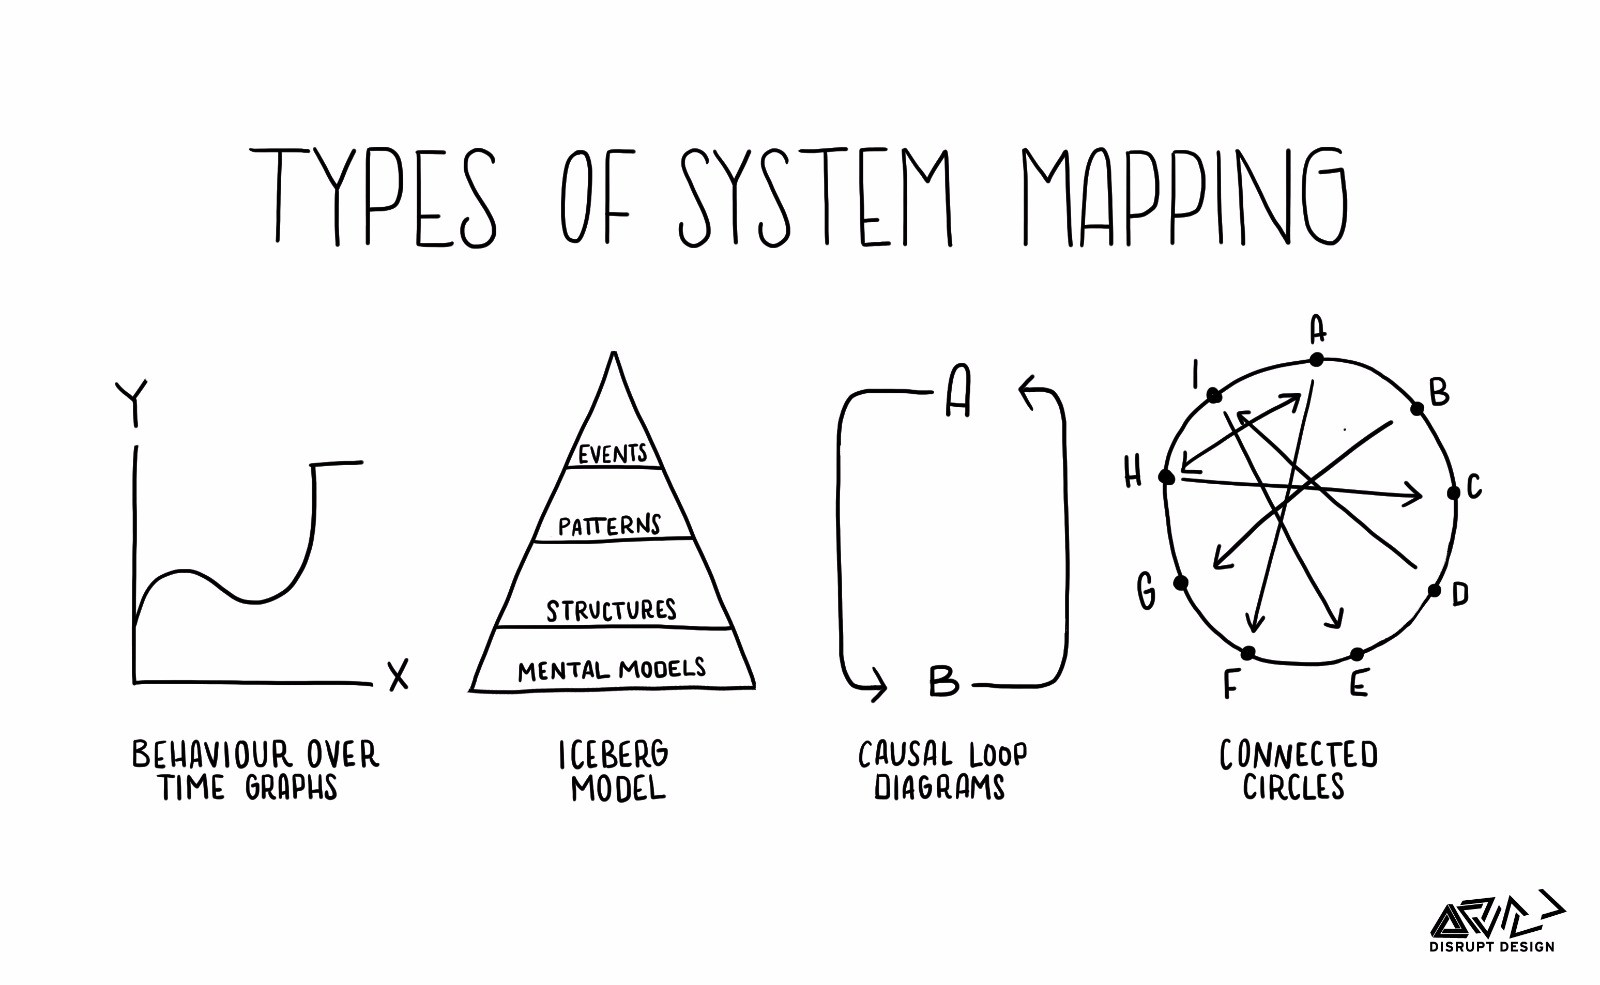 TYPES OF SYSTEM MAPPING
Y
X
BEHAVIOUR OVER
TIME GRAPHS
EVENTS
PATTERNS
STRUCTURES
MENTAL MODELS
ICEBERG
MODEL
A
B
CAUSAL LOOP
DIAGRAMS
A
B
C
D
E
F
G
H
I
CONNECTED
CIRCLES
DISRUPT DESIGN